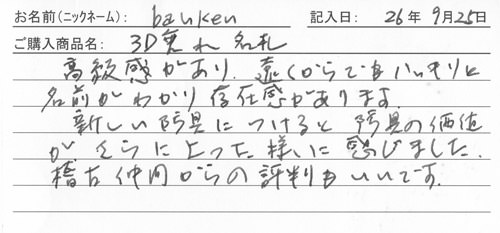 お名前(ニックネーム): banken 記入日: 26年 9月25日
ご購入商品名: 3D垂れ名札
高級感があり、遠くからでもハッキリと
名前がわかり存在感があります。
新しい防具につけると防具の価値
が、さらに上った様に感じました。
稽古仲間からの評判もいいです。